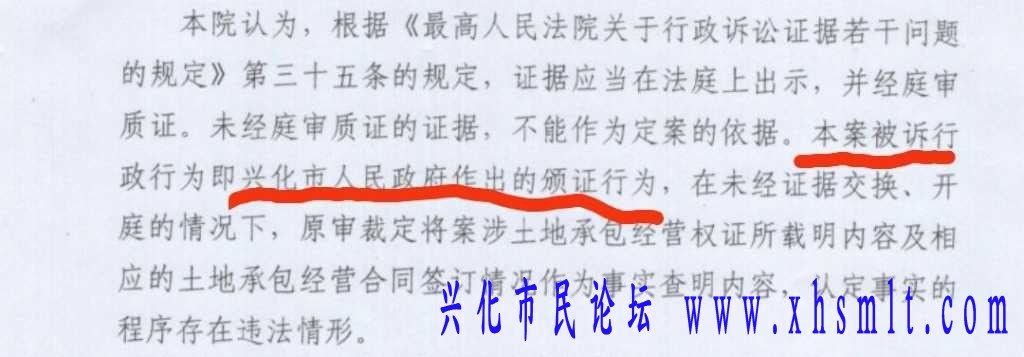 本院认为，根据《最高人民法院关于行政诉讼证据若干问题
的规定》第三十五条的规定，证据应当在法庭上出示，并经庭审
质证。未经庭审质证的证据，不能作为定案的依据。本案被诉行
政行为即兴化市人民政府作出的颁证行为，在未经证据交换、开
庭的情况下，原审裁定将案涉土地承包经营权证所载明内容及相
应的土地承包经营合同签订情况作为事实查明内容，认定事实的
程序存在违法情形。
兴化市民论坛 www.xhsmlt.com